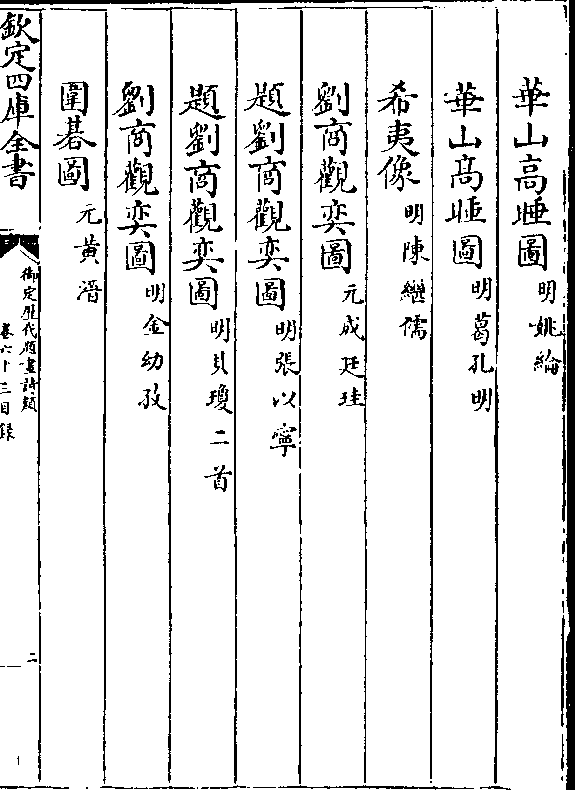 華山高睡圖 明姚綸
華山高睡圖 明葛孔明
希夷像 明陳繼儒
劉商觀奕圖 元成廷珪
題劉商觀奕圖 明張以寧
題劉商觀奕圖 明貝瓊二首
劉商觀奕圖 明金幼孜
圍碁圖 元黃溍
欽定四庫全書
御定歷代題畫詩類
卷六十三目錄
二